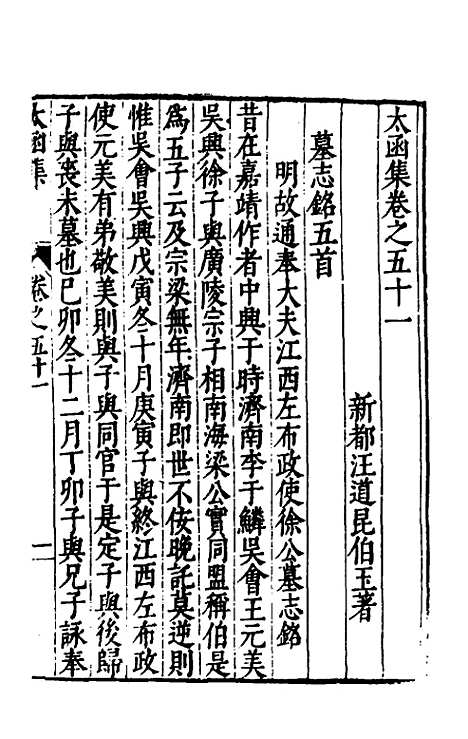 太函集卷之五十一
新都汪道昆伯玉著
墓志銘五首
明故通奉大夫江西左布政使徐公墓志銘
昔在嘉靖作者中興于時濟南李于鱗吳會王元美
吳興徐子與廣陵宗子相南海梁公實同盟稱伯是
為五子云及宗梁無年濟南即世不佞晚託莫逆則
惟吳會吳興戊寅冬十月庚寅子與終江西左布政
使元美有弟敬美則與子與同官于是定子與後歸
子與喪未墓也巳卯冬十二月丁卯子與兄子詠奉
太函集
卷之五十一
一